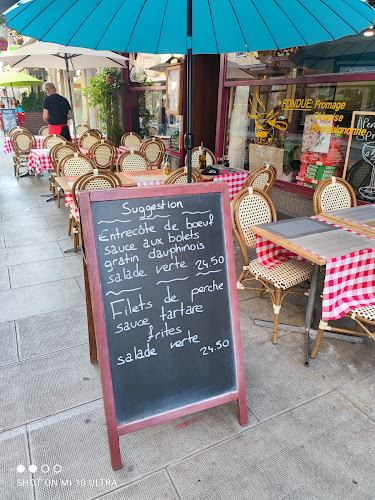 Suggestion
Entrecôte de bœuf
sauce aux bolets
gratin dauphinois
salade verte 24.50
Filets de perche
sauce tartare
frites
salade verte 24.50
FONDUE: Fromage
Chinoise
Bourguignonne
SHOT ON MI 10 ULTRA